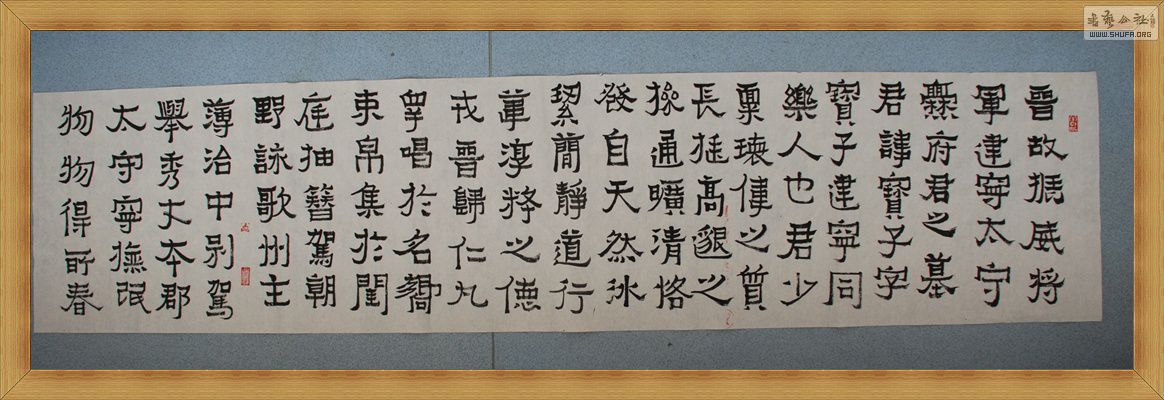 晉故振威将
軍建寧太守
爨府君之墓
君諱寶子字
寶子建寧同
樂人也君少
稟瓌偉之質
長挺高邈之
操通曠清恪
發自天然冰
絜簡靜道行
葦淳將之德
戎晉歸仁九
皋唱於名嚮
束帛集於閨
庭抽簪駕朝
野詠歌州主
薄治中別駕
舉秀才本郡
太守寧撫氓
物物得所春
書藝公社
WWW.SHUFA.ORG